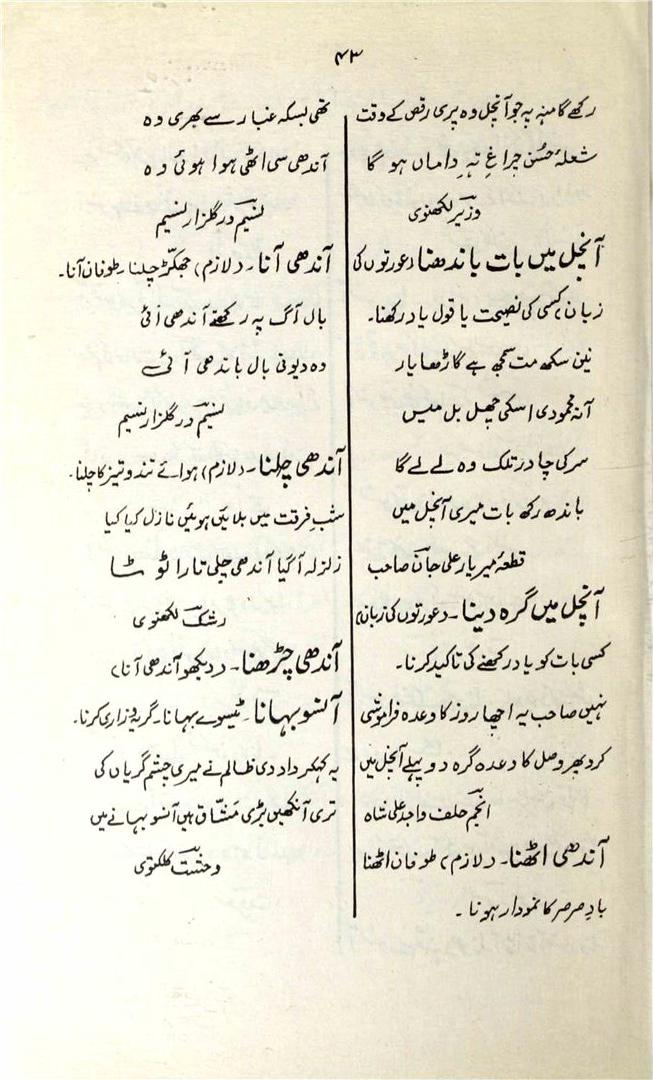 ۴۳
رکھے گا منہ پہ جو آنچل وہ پری رقص کے وقت
شعلۂ حُسن چراغِ تہِ داماں ہو گا
وزیر لکھنوی
آنچل میں بات باندھنا (عورتوں کی
زبان) کسی کی نصیحت یا قول یاد رکھنا۔
نین سکھ مت سمجھ ہے گاڑھا یار
آنہ محمودی اسکی چھل بل میں
سر کی چادر تلک وہ لے لے گا
باندھ رکھ بات میری آنچل میں
قطعۂ میر یار علی جان صاحب
آنچل میں گرہ دینا۔ (عورتوں کی زبان)
کسی بات کو یاد رکھنے کی تاکید کرنا۔
نہیں صاحب یہ اچھا روز کا وعدہ فراموشی
کرو پھر وصل کا وعدہ گرہ دو پہلے آنچل میں
انجم خلف واجد علی شاہ
آندھی اٹھنا۔ (لازم) طوفان اٹھنا
بادِ صرصر کا نمودار ہونا۔
تھی بسکہ غبار سے بھری وہ
آندھی سی اٹھی ہوا ہوئی وہ
نسیم در گلزار نسیم
آندھی آنا۔ (لازم) جھکّڑ چلنا۔ طوفان آنا۔
بال آگ پہ رکھتے آندھی آئی
وہ دیونی بال باندھی آئی
نسیم در گلزار نسیم
آندھی چلنا۔ (لازم) ہوائے تند و تیز کا چلنا۔
شبِ فرقت میں بلائیں ہوئیں نازل کیا کیا
زلزلہ آگیا آندھی چلی تارا ٹوٹا
رشک لکھنوی
آندھی چڑھنا۔ (دیکھو آندھی آنا)
آنسو بہانا۔ ٹیسوے بہانا۔ گریہ و زاری کرنا۔
یہ کہکر داد دی ظالم نے میری چشم گریاں کی
تری آنکھیں بڑی مشّاق ہیں آنسو بہانے میں
وحشت کلکتوی